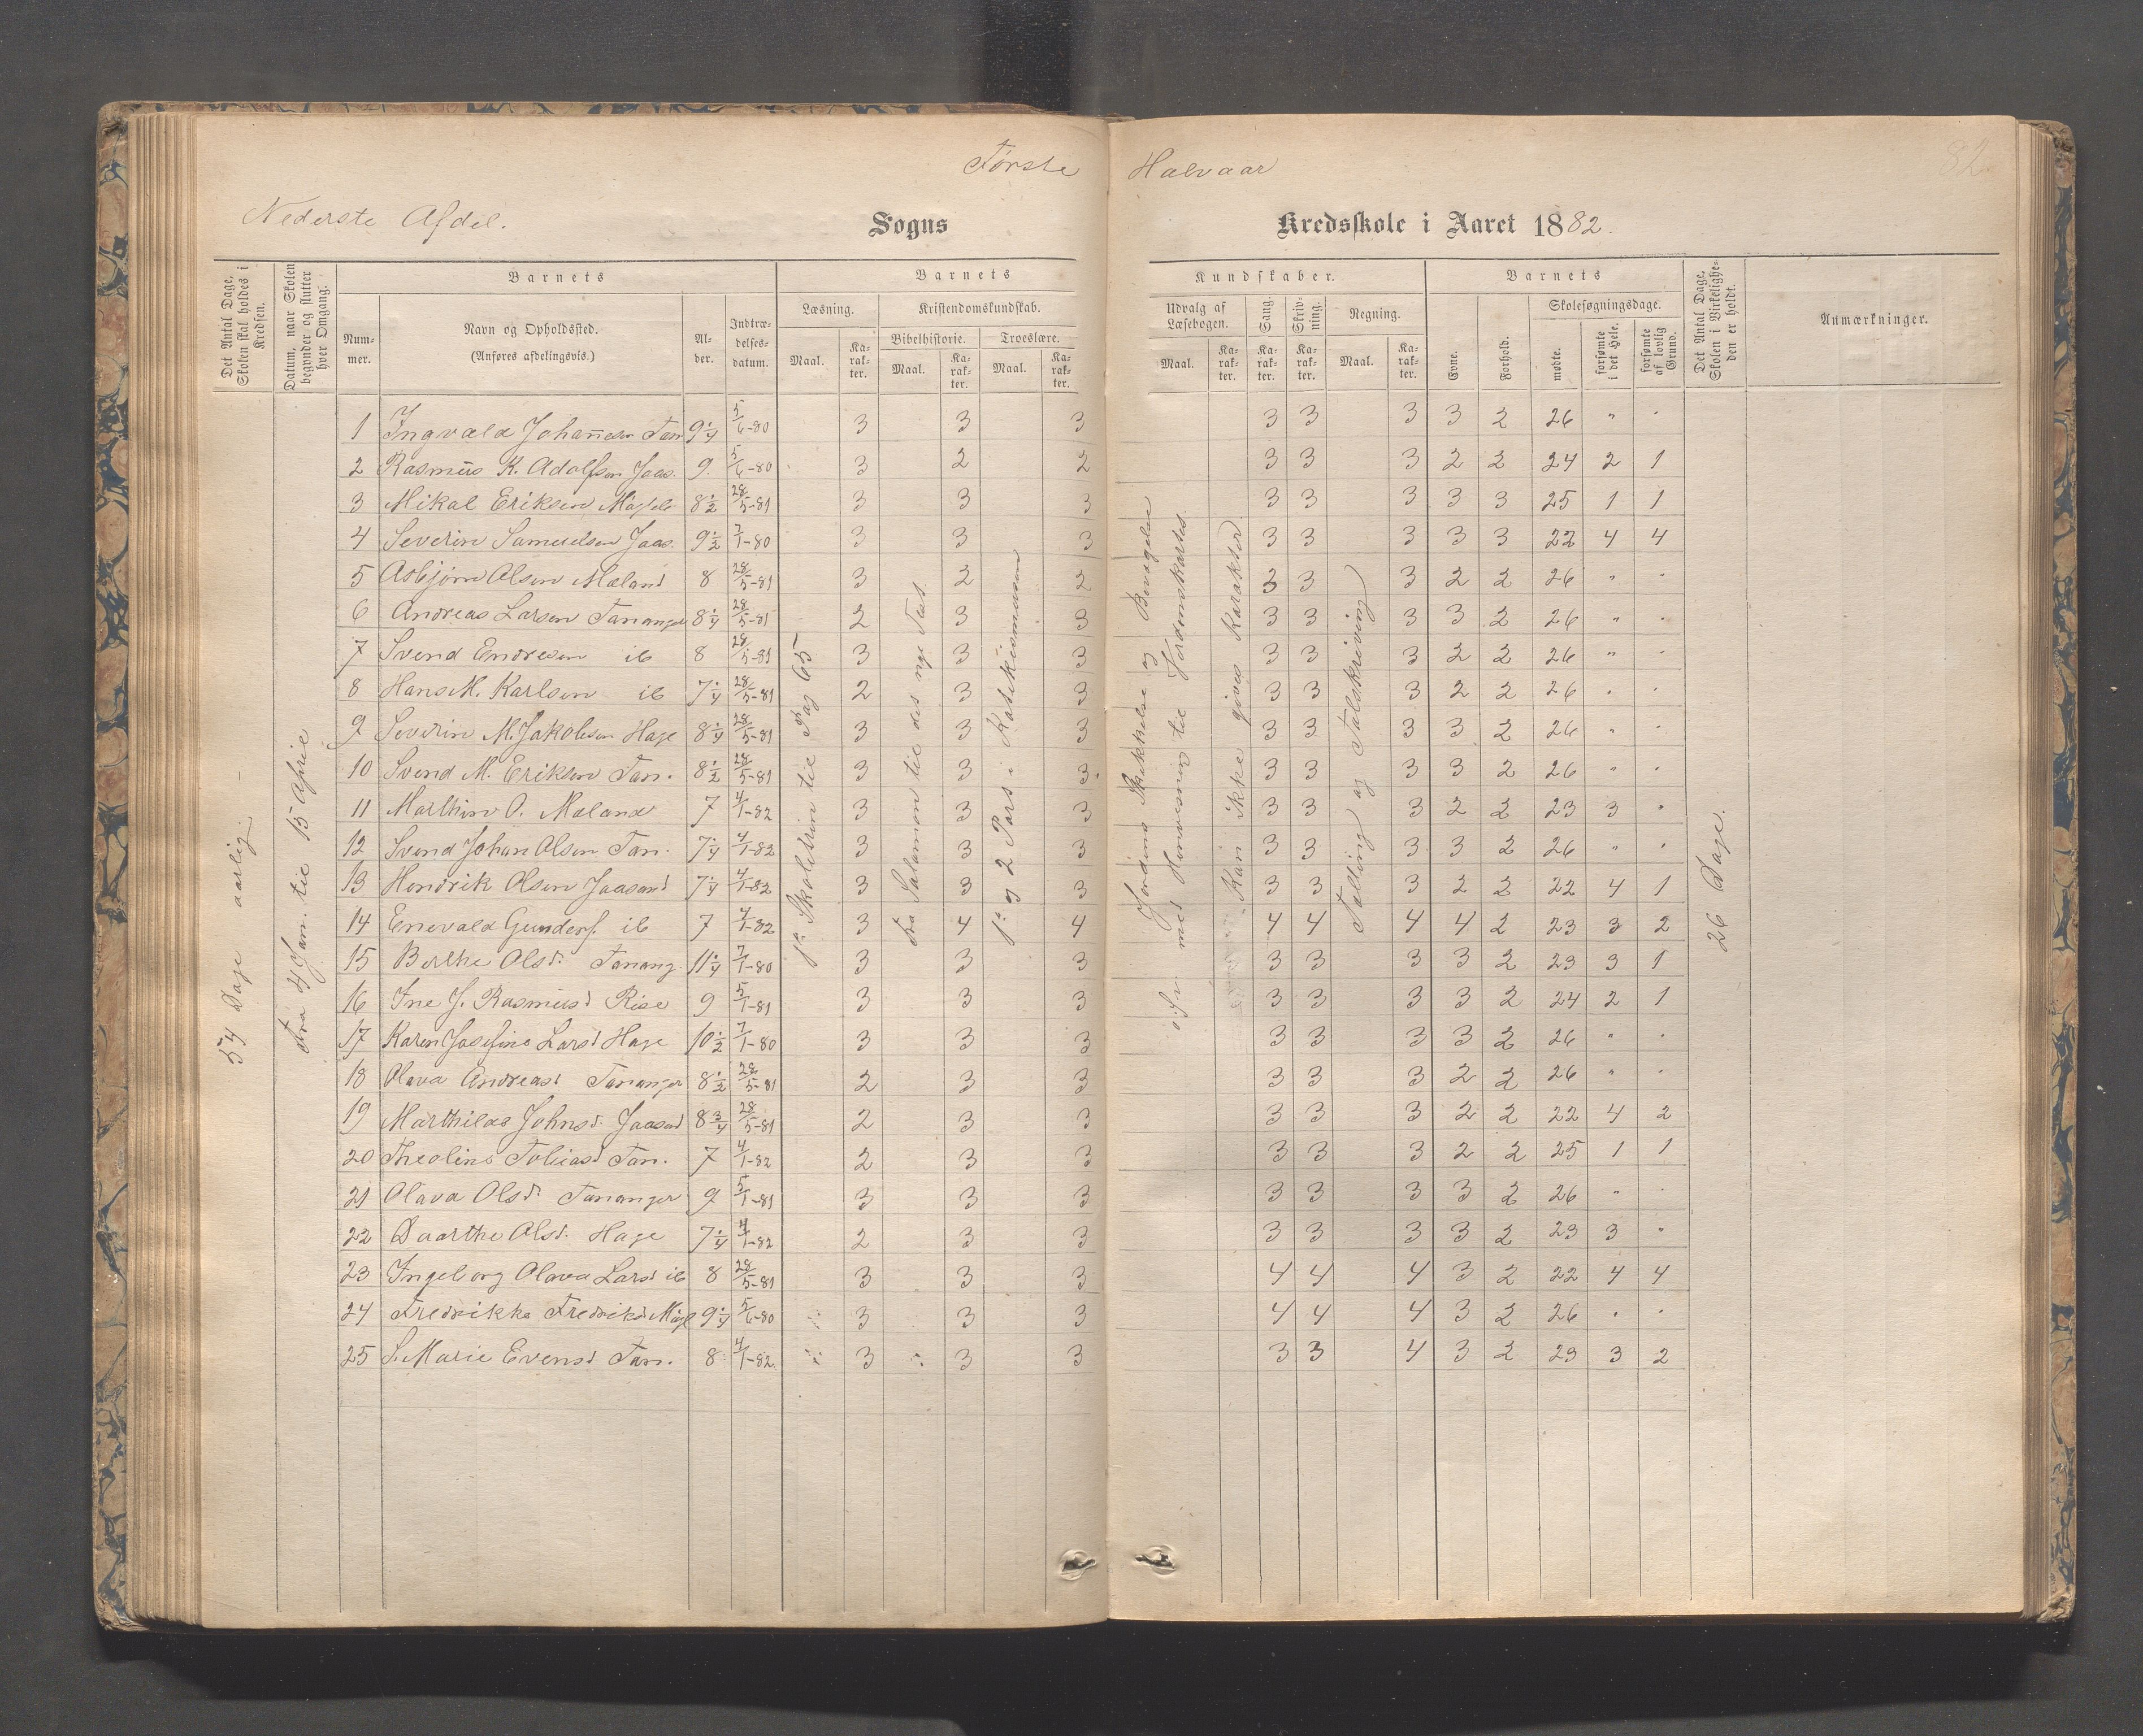 Første Halvaar
82.
Nederste Afdel. Sogns Kredsskole i Aaret 1882.
Det Antal Dage, Skolen skal holdes i Kredsen.
Datum, naar Skolen begynder og slutter hver Omgang.
Barnets
Barnets
Kundskaber.
Barnets
Nummer. Navn og Opholdssted. (Anføres afdelingsvis.) Alder. Indtrædelsesdatum.
Læsning. Maal. Karakter.
Kristendomskundskab.
Bibelhistorie. Maal. Karakter. Troeslære. Maal. Karakter.
Udvalg af Læsebogen. Maal. Karakter. Sang. Karakter. Skrivning. Karakter. Regning. Maal. Karakter.
Evne. Forhold. Skolesøgningsdage. mødte. forsømte i det Hele. forsømte af lovlig Grund.
Det Antal Dage, Skolen i Virkeligheden er holdt.
Anmærkninger.
54 Dage aarlig
Fra 4 Jan. til 15 April
1ste Skoletrin til Pag 65
Fra Salamon til det nye Test.
1ste og 2 Part i Katekismussen
Jordens Skikkelse og Bevægelse
o.s.v. med Henvisning til Jordenskartet.
Kan ikke gives Karakter
Tælling og Talskrivning
26 Dage.
1 Ingvald Johannesen Tan 9 1/4 5/6-80 3 3 3 3 3 3 3 2 26 " "
2 Rasmus K. Adolfsen Jaas. 9 5/6-80 3 2 2 3 3 3 2 2 24 2 1
3 Mikal Eriksen 8 1/2 28/5-81 3 3 3 3 3 3 3 3 25 1 1
4 Severin Samuelsen Jaas. 9 1/2 7/1-80 3 3 3 3 3 3 3 3 22 4 4
5 Asbjørn Olsen Mæland 8 28/5-81 3 2 2 3 3 3 2 2 26 " "
6 Andreas Larsen Tananger 8 1/4 28/5-81 2 3 3 3 3 3 3 2 26 " "
7 Svend Endresen ib 8 28/5-81 3 3 3 3 3 3 2 2 26 " "
8 Hans M. Karlsen ib 7 1/4 28/5-81 2 3 3 3 3 3 2 2 26 " "
9 Severin M. Jakobsen Hage 8 1/4 28/5-81 3 3 3 3 3 3 3 2 26 " "
10 Svend M. Eriksen Tan. 8 1/2 28/5-81 3 3 3 3 3 3 3 2 26 " "
11 Marthin O. Mæland 7 4/1-82 3 3 3 3 3 3 2 2 23 3 "
12 Svend Johan Olsen Tan. 7 1/4 4/1-82 3 3 3 3 3 3 3 2 26 " "
13 Hendrik Olsen Jaasund 7 1/4 4/1-82 3 3 3 3 3 3 2 2 22 4 1
14 Enevald Gunders. ib 7 4/1-82 3 4 4 4 4 4 4 2 23 3 2
15 Berthe Olsd. Tanang. 11 1/4 7/1-80 3 3 3 3 3 3 3 2 23 3 1
16 Ine J. Rasmusd Risa 9 5/1-81 3 3 3 3 3 3 3 2 24 2 1
17 Karen Josefine Larsd Hage 10 1/2 7/1-80 3 3 3 3 3 3 3 2 26 " "
18 Olava Andreasd Tananger 8 1/2 28/5-81 2 3 3 3 3 3 2 2 26 " "
19 Marthilas Johnsd. Jaasund 8 3/4 28/5-81 2 3 3 3 3 3 2 2 22 4 2
20 Theoline Tobiasd Tan. 7 4/1-82 2 3 3 3 3 3 2 2 25 1 1
21 Olava Olsd. Tananger 9 5/1-81 3 3 3 3 3 3 3 2 26 " "
22 Daarthe Olsd. Hage 7 1/4 4/1-82 2 3 3 3 3 3 3 2 23 3 "
23 Ingeborg Olava Larsd ib 8 28/5-81 3 3 3 4 4 4 3 2 22 4 4
24 Fredrikke Fredriksd 9 1/4 5/6-80 3 3 3 4 4 4 3 2 26 " "
25 S. Marie Evensd Tan. 8 4/1-82 3 3 3 3 3 4 3 2 23 3 2